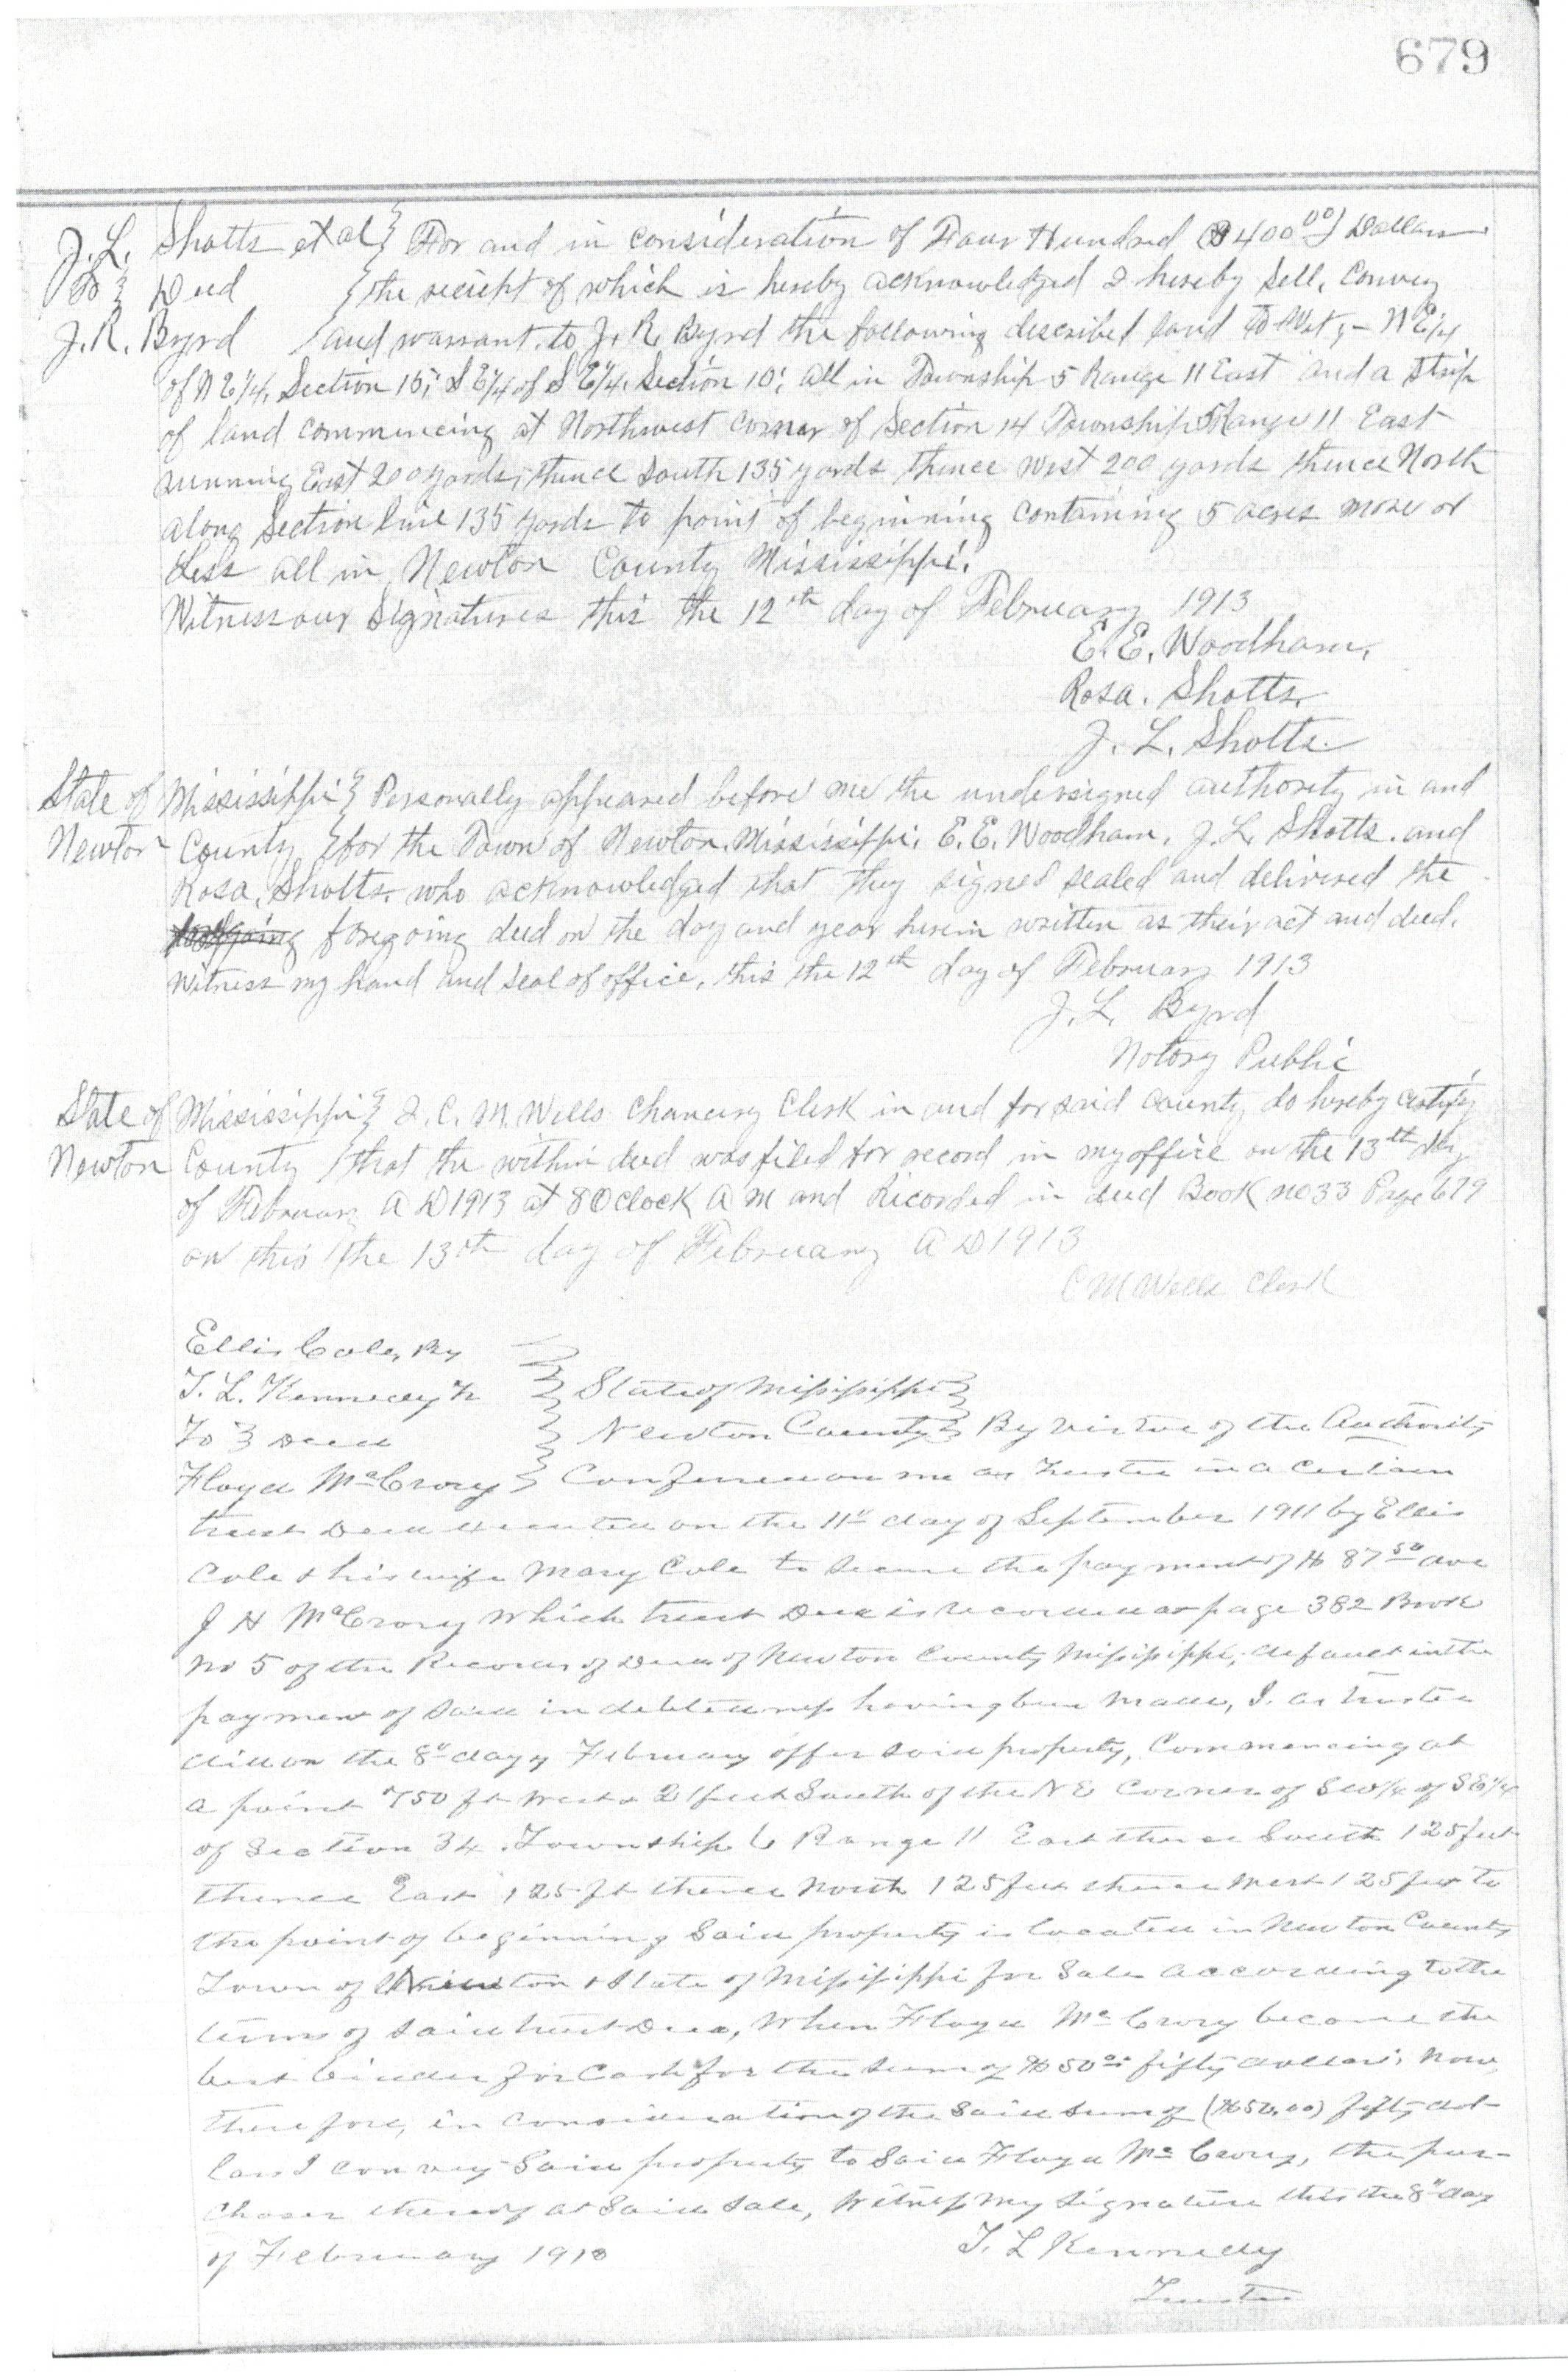 679
J. L. Shotts et al } For and in consideration of Four Hundred ($400.00) Dollars
To } Deed } the reciept of which is hereby acknowledged I hereby sell, convey
J. R. Byrd } and warrant to J. R. Byrd the following described land to wit; - NE1/4
of NE1/4, Section 15; SE1/4 of SE1/4, Section 10; all in Township 5 Range 11 East and a strip
of land commencing at Northwest corner of Section 14 Township 5 Range 11 East
running East 200 yards; thence South 135 yards thence west 200 yards thence North
along Section line 135 yards to point of beginning containing 5 acres more or
Less all in Newton County Mississippi.
Witness our signatures this the 12th day of February 1913
E. E. Woodham,
Rosa. Shotts.
J. L. Shotts.
State of Mississippi } Personally appeared before me the undersigned authority in and
Newton County } for the Town of Newton, Mississippi, E. E. Woodham, J. L. Shotts. and
Rosa. Shotts. who acknowledged that they signed sealed and delivered the
foregoing deed on the day and year herein written as their act and deed.
Witness my hand and seal of office, this the 12th day of February 1913
J. L. Byrd
Notory Public
State of Mississippi } I. C. M. Wells Chancery Clerk in and for said County, do hereby certify
Newton County } that the within deed was filed for record in my office on the 13th day
of February A D 1913 at 8 Oclock A M and Recorded in deed Book no 33 Page 679
on this the 13th day of February A D 1913
C M Wells Clerk
Ellis Cole, By
T. L. Kennedy Tr } State of Mississippi }
To } Deed } Newton County } By virtue of the Authority
Floyd McCrory } Conferred on me as trustee in a certain
trust Deed executed on the 11" day of September 1911 by Ellis
Cole & his wife Mary Cole to secure the payment of $87.50 due
J H McCrory which trust Deed is recorded at page 382 Book
No 5 of the Records of Deeds of Newton County Mississippi, default in the
payment of said indebtedness having been made, I. as trustee
did on the 8" day of February offer said property, Commencing at
a point 750 ft West & 21 feet South of the NE Corner of SW1/4 of SE1/4
of Section 34. Township 6 Range 11 East thence South 125 feet
thence East 125 ft thence North 125 feet thence West 125 feet to
the point of beginning Said property is located in Newton County
Town of Newton & State of Mississippi for Sale according to the
terms of said trust Deed, When Floyd McCrory became the
best bidder for Cash for the sum of $50.00 fifty dollars, Now,
therefore, in consideration of the said sum of ($50.00) fifty dol-
lars I convey said property to said Floyd McCrory, the pur-
chaser thereof at said sale, Witness my signature this the 8" day
of February 1913
T. L Kennedy
Trustee